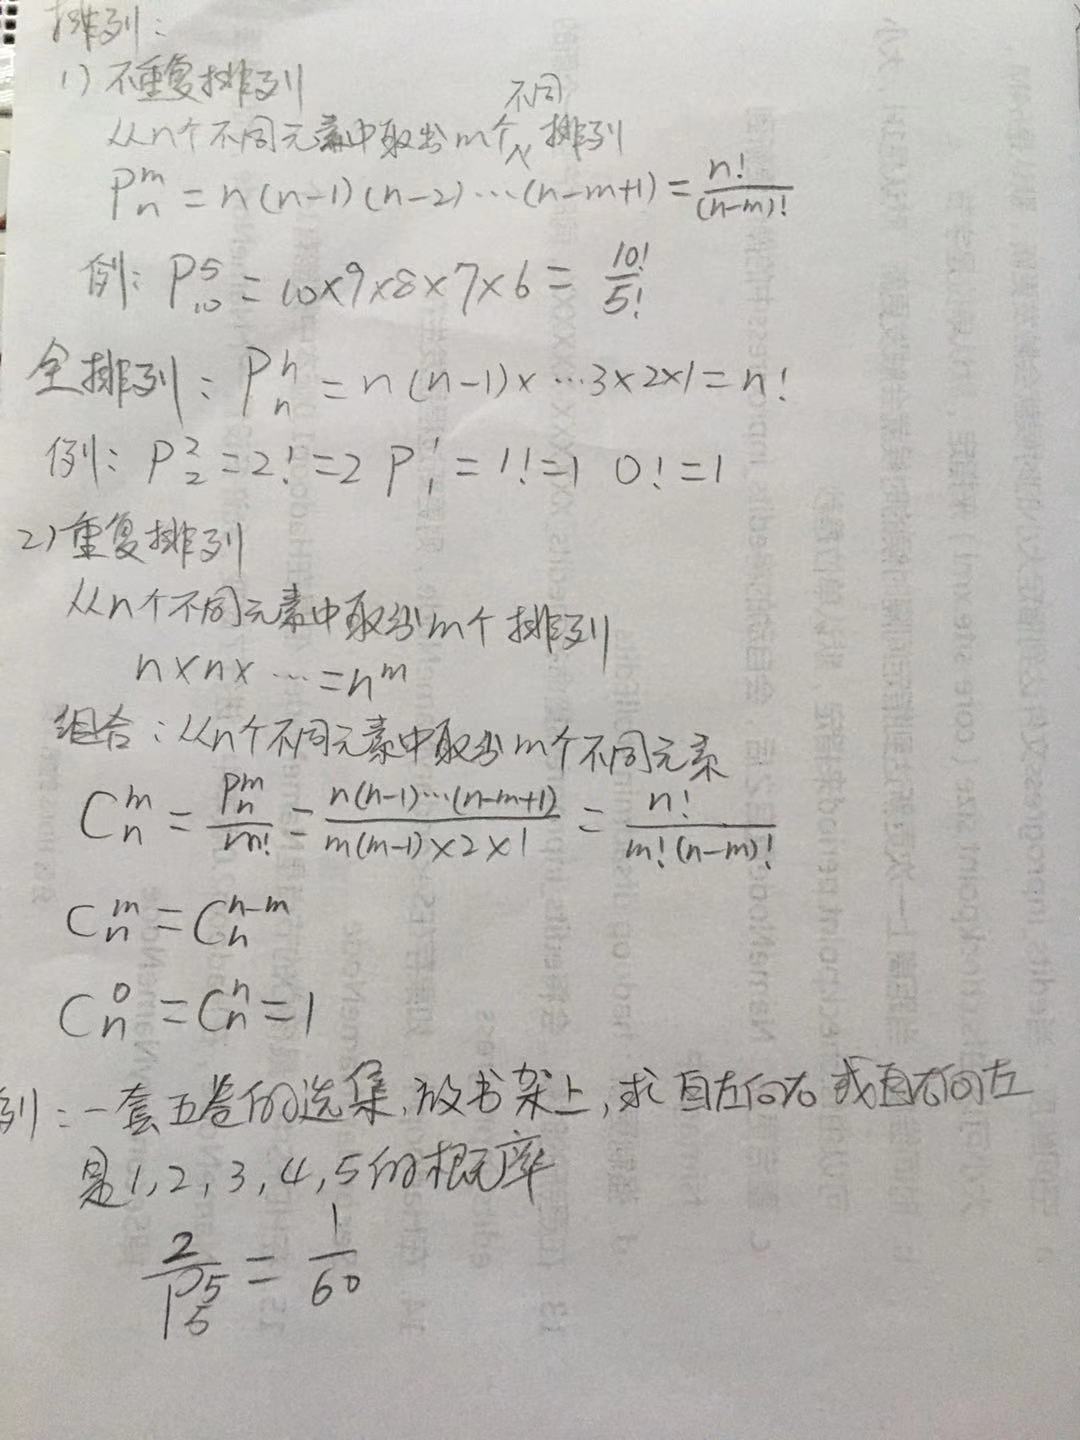 排列:
1) 不重复排列
从n个不同元素中取出m个不同排列
P_n^m = n(n-1)(n-2)…(n-m+1) = n!/(n-m)!
例: P_10^5 = 10×9×8×7×6 = 10!/5!
全排列: P_n^n = n(n-1)×…3×2×1 = n!
例: P_2^2 = 2! = 2 P_1^1 = 1! = 1 0! = 1
2) 重复排列
从n个不同元素中取出m个排列
n×n×… = n^m
组合: 从n个不同元素中取出m个不同元素
C_n^m = P_n^m/m! = n(n-1)…(n-m+1)/m(m-1)×2×1 = n!/m!(n-m)!
C_n^m = C_n^{n-m}
C_n^0 = C_n^n = 1
例: 一套五卷的选集,放书架上,求自左向右或自右向左
是1,2,3,4,5的概率
2/P_5^5 = 1/60